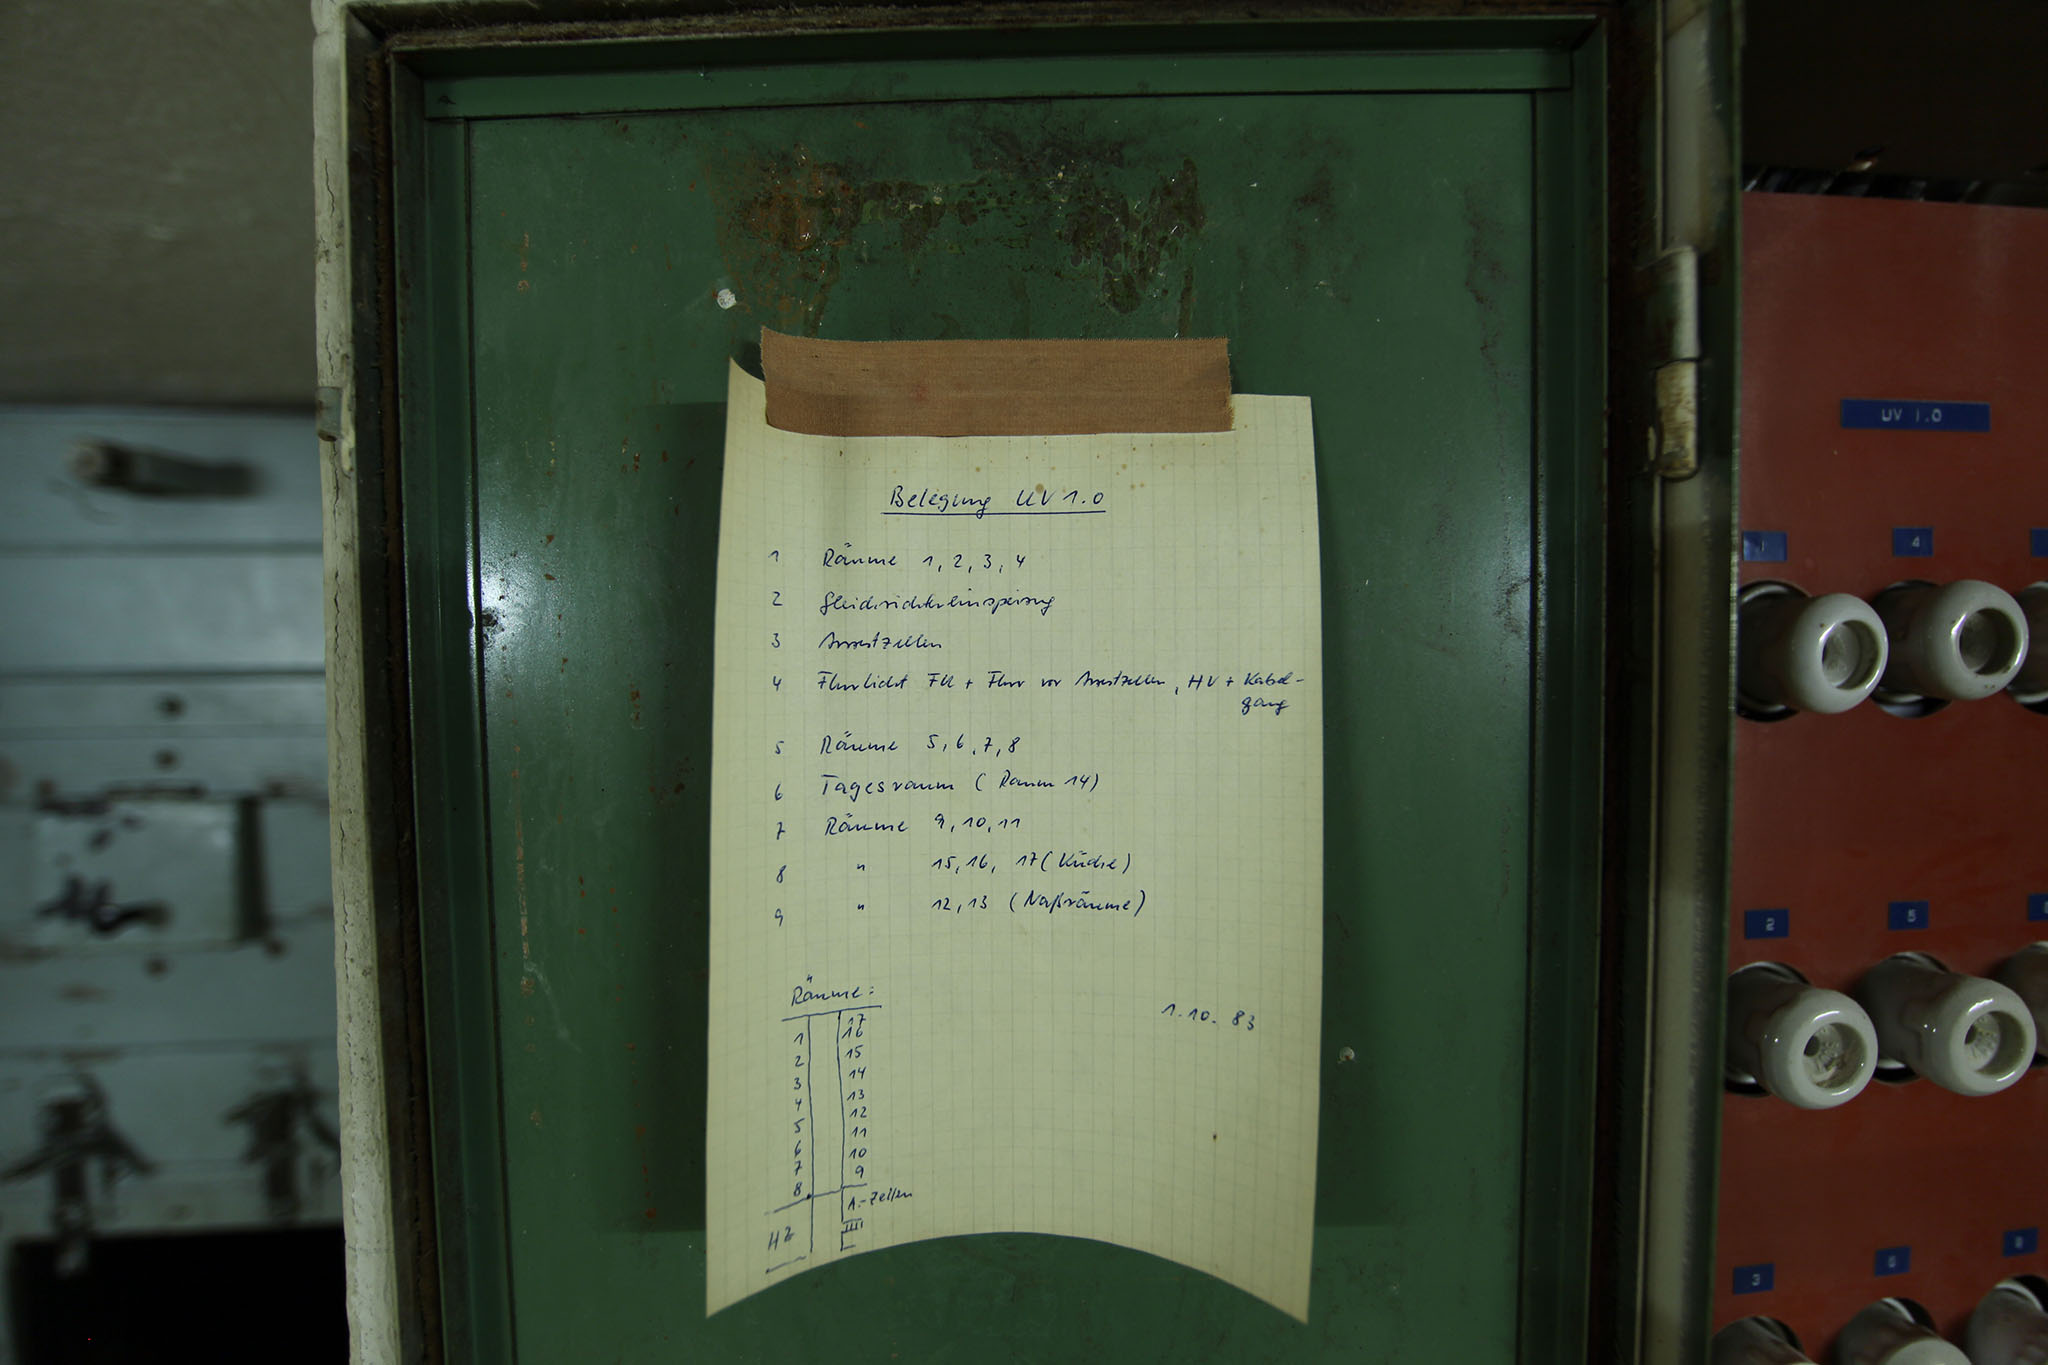 Belegung UV 1.0
1 Räume 1, 2, 3, 4
2 Gleichrichtereinspeisung
3 Arrestzellen
4 Flurlicht FU + Flur vor Arrestzellen, HV + Kabel-
gang
5 Räume 5, 6, 7, 8
6 Tagesraum (Raum 14)
7 Räume 9, 10, 11
8 " 15, 16, 17 (Küche)
9 " 12, 13 (Naßräume)
Räume:
17
1 16
2 15
3 14
4 13
5 12
6 11
7 10
8 9
A.-Zellen
HZ
1.10.83
UV 1.0
1
4
2
5
3
6
8